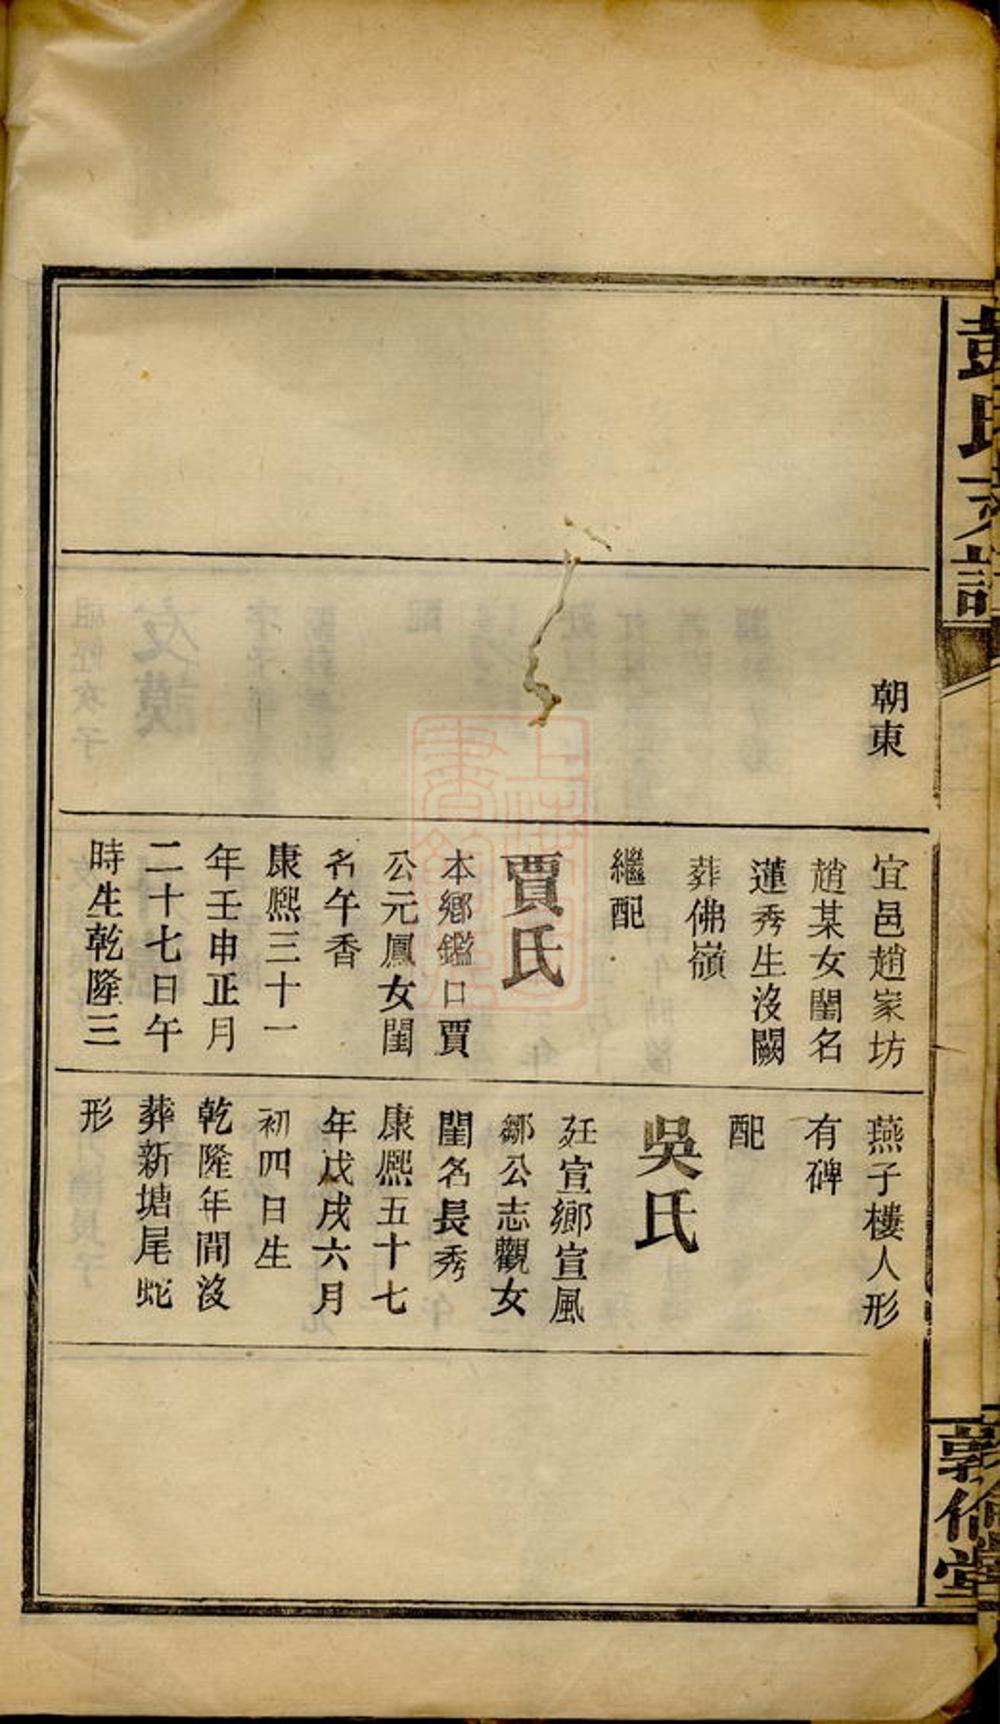 彭氏支譜
朝東
宜邑趙家坊
趙某女閨名
蓮秀生沒闕
葬佛嶺
繼配
賈氏
本鄉鑑口賈
公元鳳女閨
名午香
康熙三十一
年壬申正月
二十七日午
時生乾隆三
燕子樓人形
有碑
配
吳氏
宣鄉宣風
鄒公志觀女
閨名長秀
康熙五十七
年戊戌六月
初四日生
乾隆年間沒
葬新塘尾蛇
形
敦倫堂